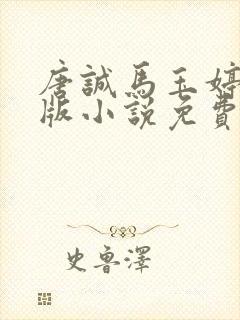 唐誠馬玉婷
版小說免費
史魯澤